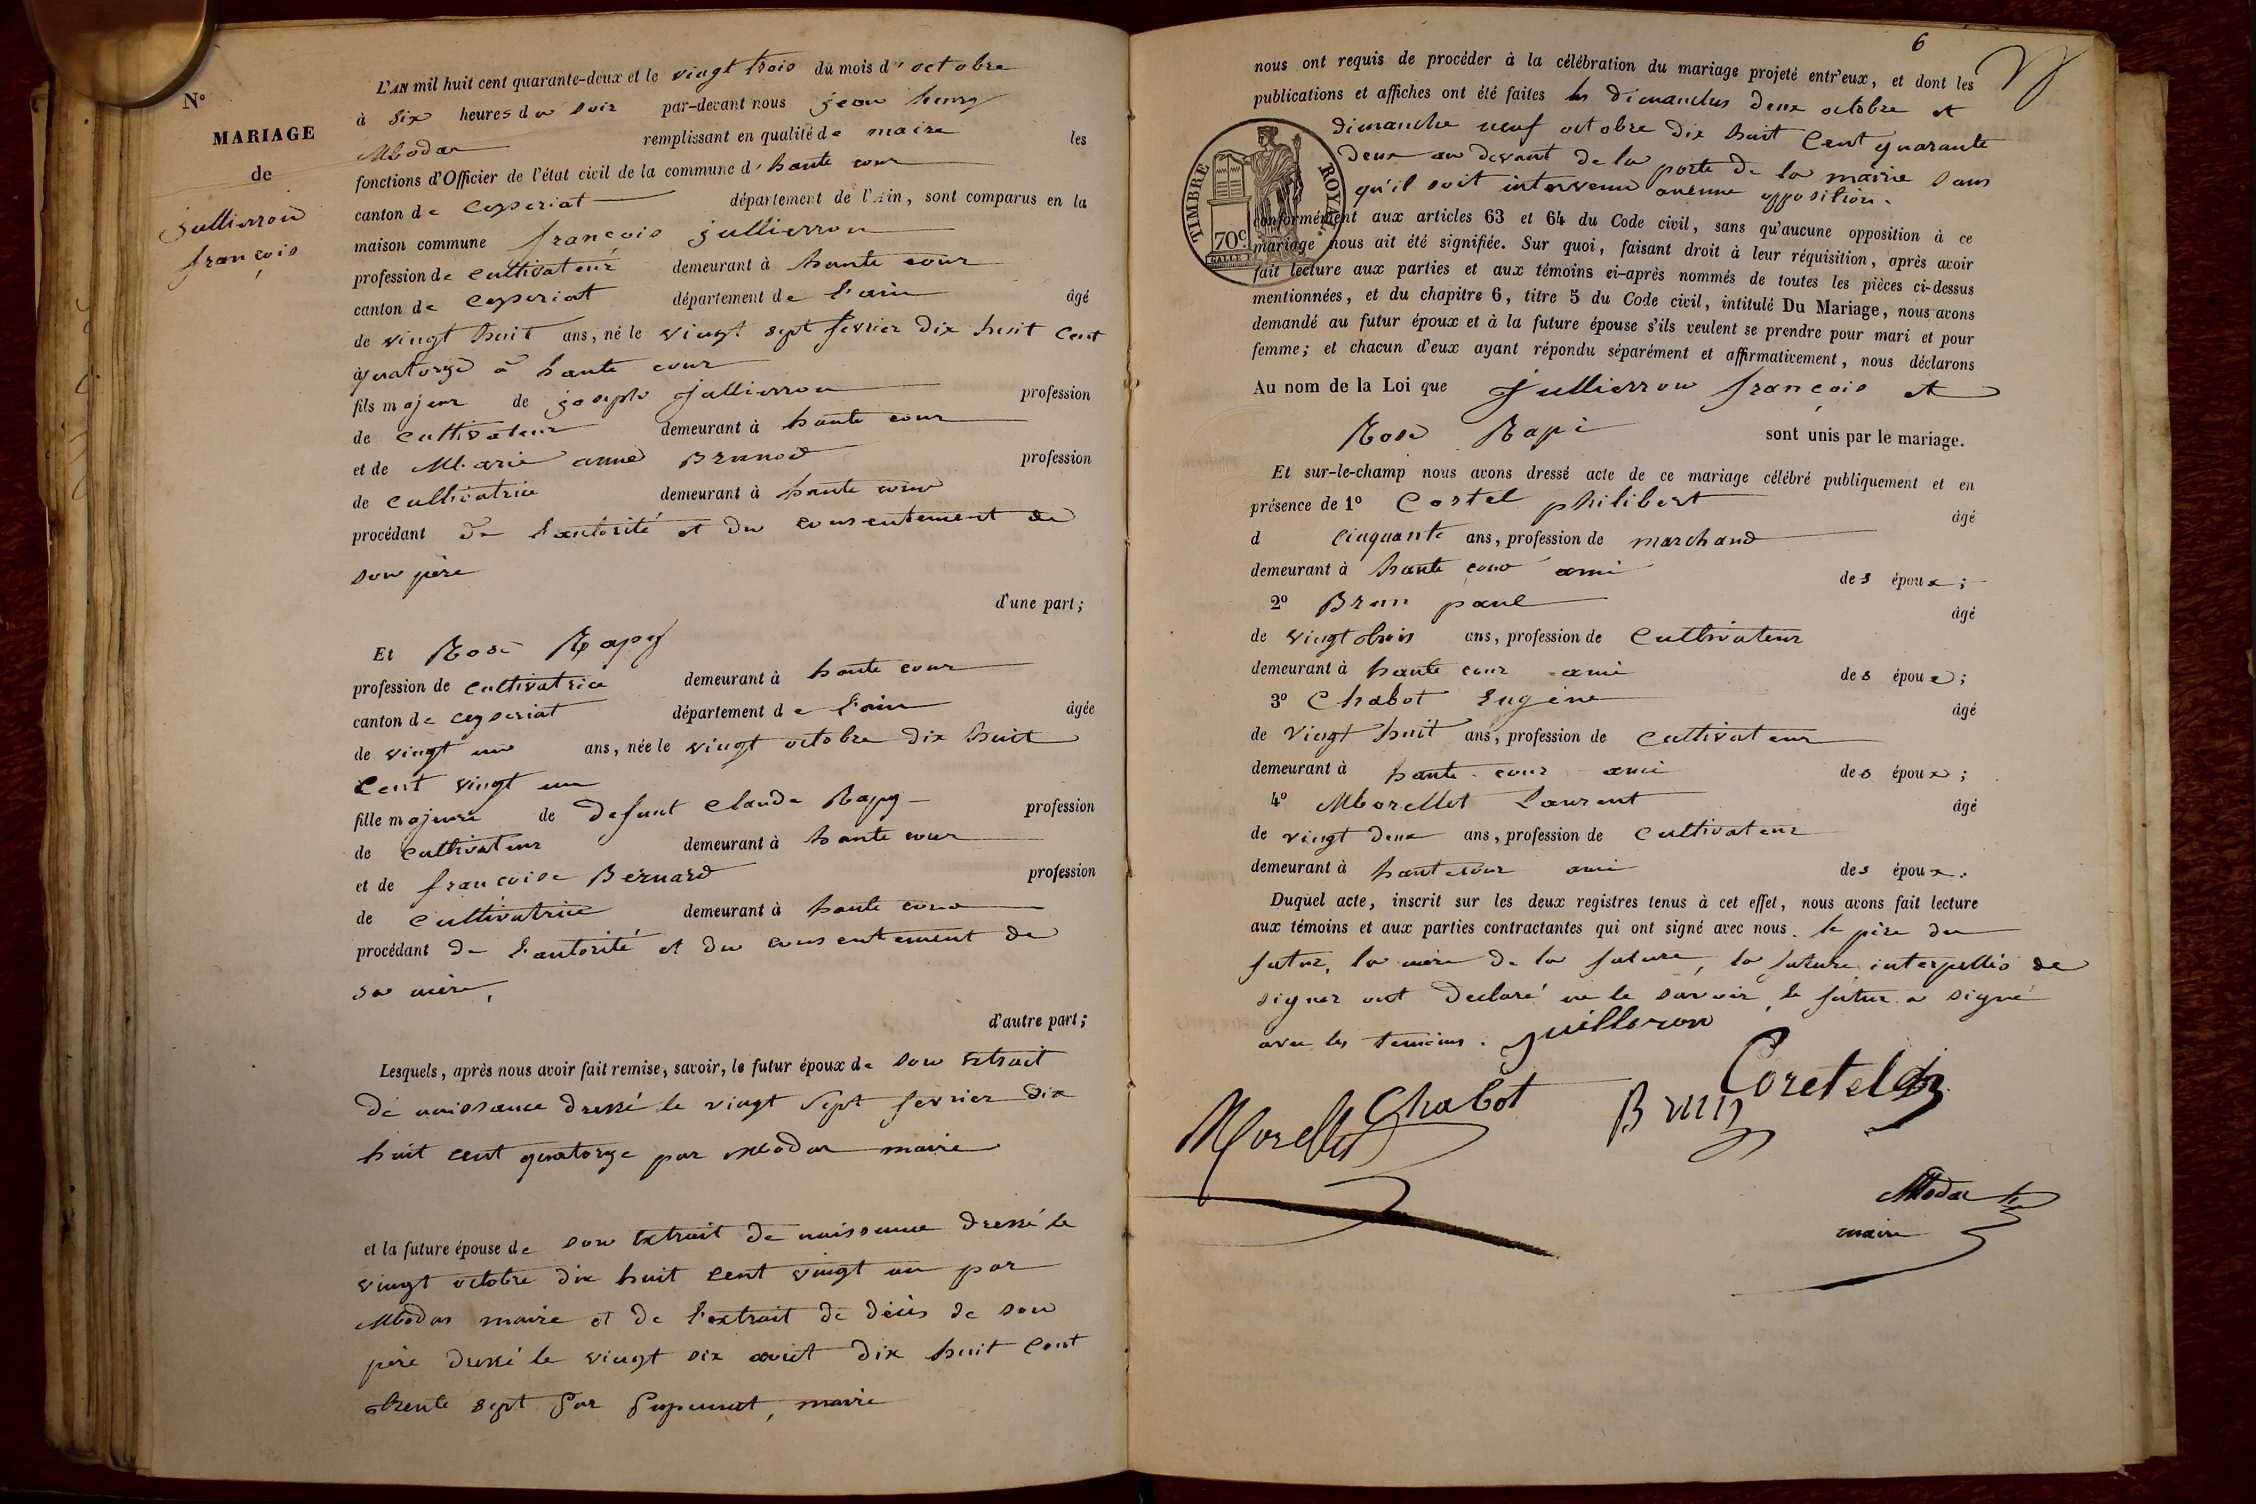 N°
MARIAGE
de
jullierron
françois
L'AN mil huit cent quarante-deux et le vingt trois du mois d'octobre
à six heures du soir par-devant nous jean henry
Modas remplissant en qualité de maire les
fonctions d'Officier de l'état civil de la commune d'haute cour
canton de ceyseriat département de l'Ain, sont comparus en la
maison commune françois jullierron
profession de cultivateur demeurant à haute cour
canton de ceyseriat département de l'ain âgé
de vingt huit ans, né le vingt sept fevrier dix huit cent
quatorze à haute cour
fils majeur de joseph jullierron profession
de cultivateur demeurant à haute cour
et de Marie anne Brunod profession
de cultivatrice demeurant à haute cour
procédant de l'autorité et du consentement de
son père
d'une part;
Et Rose Rapy
profession de cultivatrice demeurant à haute cour
canton de ceyseriat département de l'ain âgée
de vingt un ans, née le vingt octobre dix huit
cent vingt un
fille majeure de defunt claude Rapy profession
de cultivateur demeurant à haute cour
et de françoise Bernard profession
de cultivatrice demeurant à haute cour
procédant de l'autorité et du consentement de
sa mère,
d'autre part;
Lesquels, après nous avoir fait remise, savoir, le futur époux de son extrait
de naissance dressé le vingt sept fevrier dix
huit cent quatorze par Modas maire
et la future épouse de son extrait de naissance dressé le
vingt octobre dix huit cent vingt un par
Modas maire et de l'extrait de décès de son
père dressé le vingt six août dix huit cent
trente sept par maire
6
nous ont requis de procéder à la célébration du mariage projeté entr'eux, et dont les
publications et affiches ont été faites les dimanches deux octobre et
dimanche neuf octobre dix huit cent quarante
deux au devant de la porte de la mairie sans
qu'il soit intervenu aucune opposition.
TIMBRE ROYAL
70c
conformément aux articles 63 et 64 du Code civil, sans qu'aucune opposition à ce
mariage nous ait été signifiée. Sur quoi, faisant droit à leur réquisition, après avoir
fait lecture aux parties et aux témoins ci-après nommés de toutes les pièces ci-dessus
mentionnées, et du chapitre 6, titre 5 du Code civil, intitulé Du Mariage, nous avons
demandé au futur époux et à la future épouse s'ils veulent se prendre pour mari et pour
femme; et chacun d'eux ayant répondu séparément et affirmativement, nous déclarons
Au nom de la Loi que jullierron françois et
Rose Rapi sont unis par le mariage.
Et sur-le-champ nous avons dressé acte de ce mariage célébré publiquement et en
présence de 1° Cortel philibert âgé
d cinquante ans, profession de marchand
demeurant à haute cour ami des époux;
2° Brun paul âgé
de vingt trois ans, profession de cultivateur
demeurant à haute cour ami des époux;
3° Chabot Eugène âgé
de vingt huit ans, profession de cultivateur
demeurant à haute cour ami des époux;
4° Morellet Laurent âgé
de vingt deux ans, profession de cultivateur
demeurant à hautecour ami des époux.
Duquel acte, inscrit sur les deux registres tenus à cet effet, nous avons fait lecture
aux témoins et aux parties contractantes qui ont signé avec nous. le père du
futur, la mère de la future, la future interpellés de
signer ont declaré ne le savoir, le futur a signé
avec les temoins. juilleron
Coretel
Morellet Chabot Brun
Modas
maire